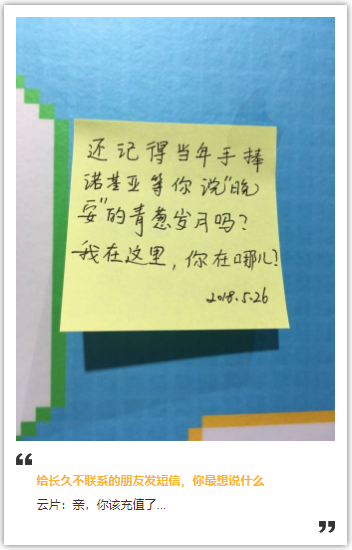 还记得当年手捧
诺基亚等你说"晚
安"的青葱岁月吗?
我在这里,你在哪儿?
2018.5.26
给长久不联系的朋友发短信,你最想说什么
云片:亲,你该充值了...